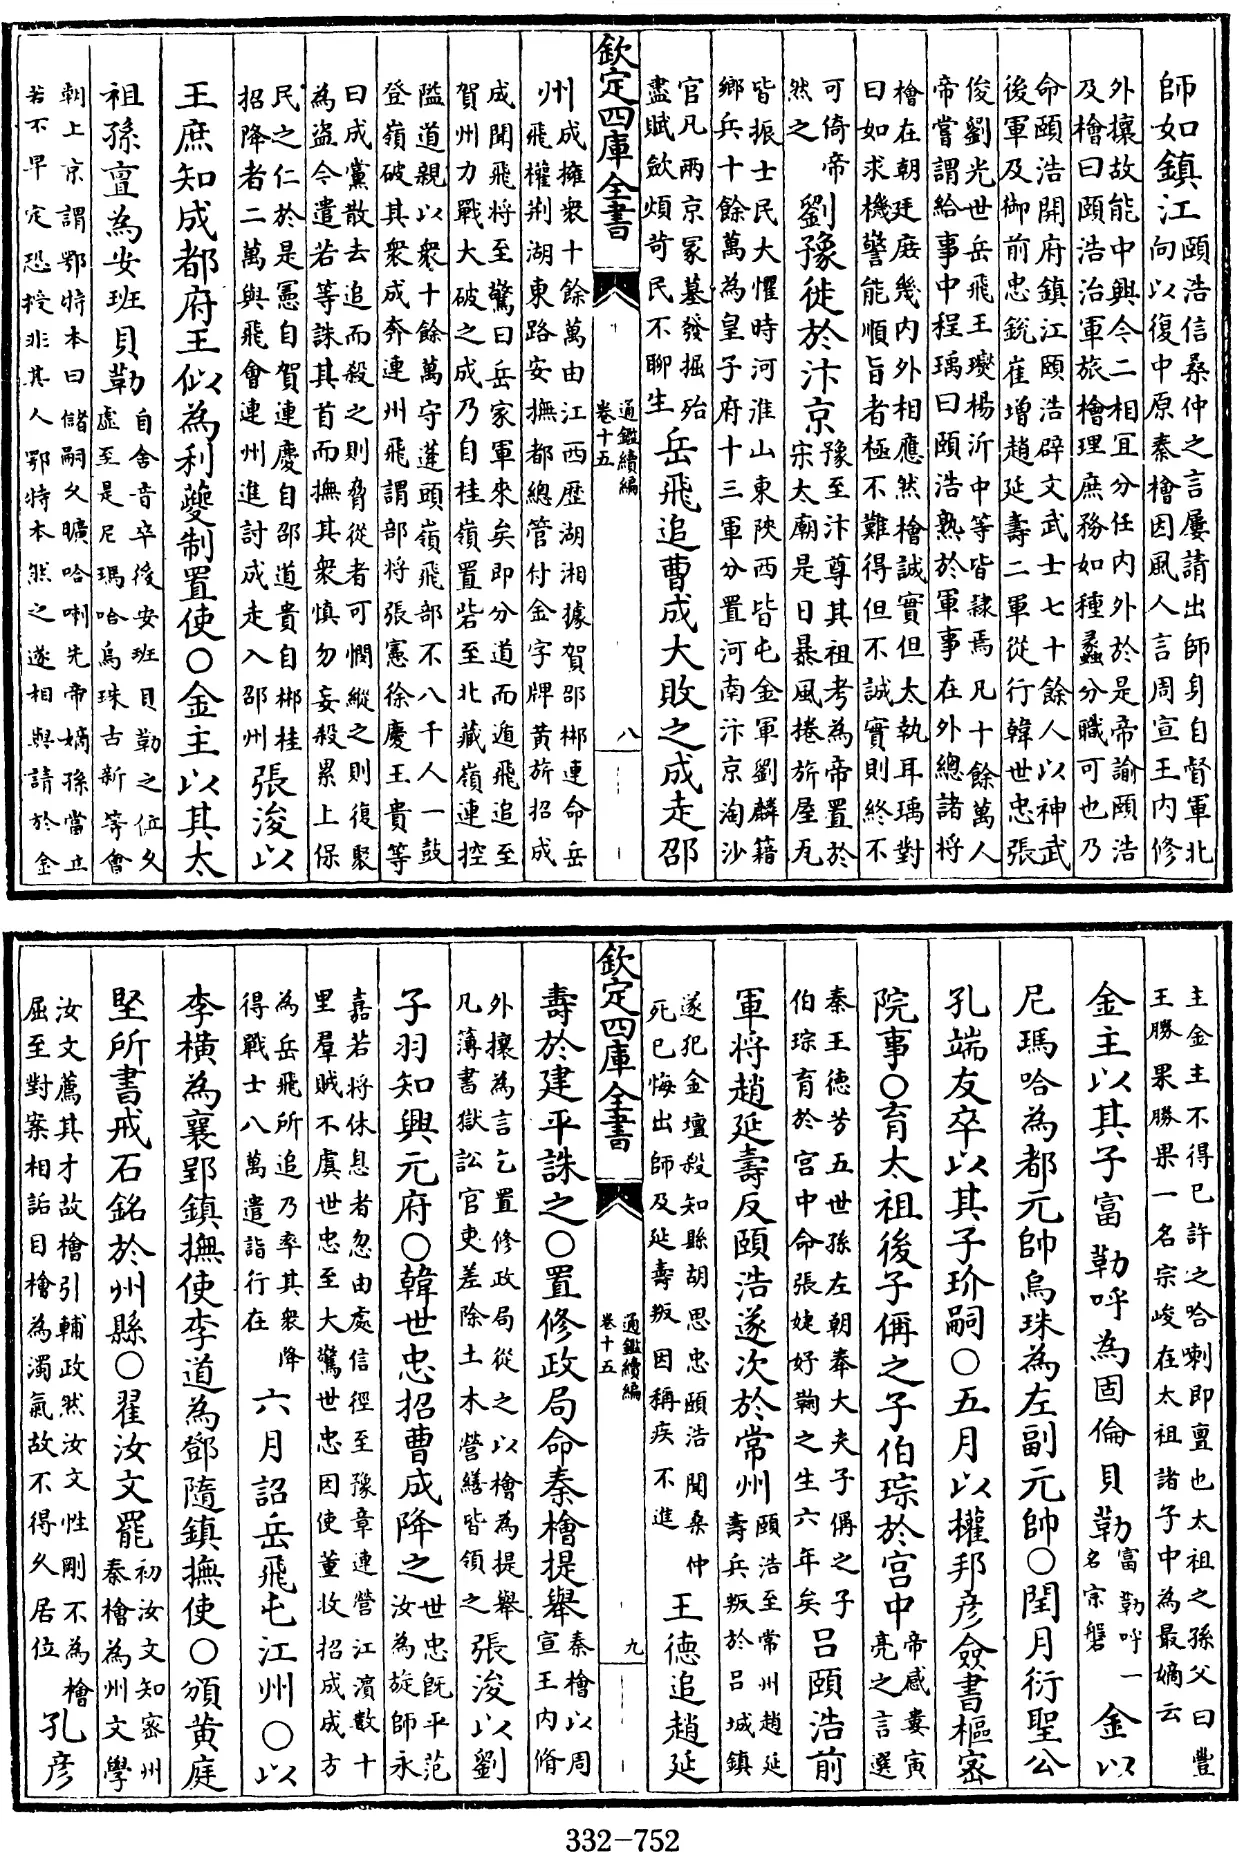 師如鎮江頤浩信桑仲之言屢請出師身自督軍北
向以復中原秦檜因風人言周宣王内修
外攘故能中興今二相宜分任内外於是帝諭頤浩
及檜曰頤浩治軍旅檜理庶務如種蠡分職可也乃
命頤浩開府鎮江頤浩辟文武士七十餘人以神武
後軍及御前忠銳崔增趙延壽二軍從行韓世忠張
俊劉光世岳飛王𤫉楊沂中等皆隸焉凡十餘萬人
帝嘗謂給事中程瑀曰頤浩熟於軍事在外總諸將
檜在朝廷庭幾内外相應然檜誠實但太執耳瑀對
曰如求機警能順旨者極不難得但不誠實則終不
可倚帝
然之
劉豫徙於汴京
豫至汴尊其祖考為帝置於
宋太廟是日暴風捲旂屋瓦
皆振士民大懼時河淮山東陜西皆屯金軍劉麟籍
鄉兵十餘萬為皇子府十三軍分置河南汴京淘沙
官凡兩京冢墓發掘殆
盡賦斂煩苛民不聊生
岳飛追曹成大敗之成走邵
欽定四庫全書
通鑑續編
卷十五
八
州
成擁衆十餘萬由江西歷湖湘據賀邵郴連命岳
飛權荆湖東路安撫都總管付金字牌黄旂招成
成聞飛將至驚曰岳家軍來矣即分道而遁飛追至
賀州力戰大破之成乃自桂嶺置砦至北藏嶺連控
隘道親以衆十餘萬守蓬頭嶺飛部不八千人一鼓
登嶺破其衆成奔連州飛謂部將張憲徐慶王貴等
曰成黨散去追而殺之則脅從者可憫縱之則復聚
為盜今遣若等誅其首而撫其衆慎勿妄殺累上保
民之仁於是憲自賀連慶自邵道貴自郴桂
招降者二萬與飛會連州進討成走入邵州
張浚以
王庶知成都府王似為利夔制置使○金主以其太
祖孫亶為安班貝勒
自舍音卒後安班貝勒之位久
虛至是尼瑪哈烏珠古新等會
朝上京謂鄂特本曰儲嗣久曠哈喇先帝嫡孫當立
若不早定恐授非其人鄂特本然之遂相與請於金
主金主不得已許之哈喇即亶也太祖之孫父曰豐
王勝果勝果一名宗峻在太祖諸子中為最嫡云
金主以其子富勒呼為固倫貝勒
富勒呼一
名宗磐
金以
尼瑪哈為都元帥烏珠為左副元帥○閏月衍聖公
孔端友卒以其子玠嗣○五月以權邦彦僉書樞密
院事○育太祖後子偁之子伯琮於宫中
帝感婁寅
亮之言選
秦王德芳五世孫左朝奉大夫子偁之子
伯琮育於宫中命張婕妤鞠之生六年矣
吕頤浩前
軍將趙延壽反頤浩遂次於常州
頤浩至常州趙延
壽兵叛於吕城鎮
遂犯金壇殺知縣胡思忠頤浩聞桑仲
死已悔出師及延壽叛因稱疾不進
王德追趙延
欽定四庫全書
通鑑續編
卷十五
九
壽於建平誅之○置修政局命秦檜提舉
秦檜以周
宣王内脩
外攘為言乞置修政局從之以檜為提舉
凡簿書獄訟官吏差除土木營繕皆領之
張浚以劉
子羽知興元府○韓世忠招曹成降之
世忠既平范
汝為旋師永
嘉若將休息者忽由處信徑至豫章連營江濵數十
里羣賊不虞世忠至大驚世忠因使董旼招成成方
為岳飛所追乃率其衆降
得戰士八萬遣詣行在
六月詔岳飛屯江州○以
李横為襄郢鎮撫使李道為鄧隨鎮撫使○頒黄庭
堅所書戒石銘於州縣○翟汝文罷
初汝文知密州
秦檜為州文學
汝文薦其才故檜引輔政然汝文性剛不為檜
屈至對案相詬目檜為濁氣故不得久居位
孔彦
332-752